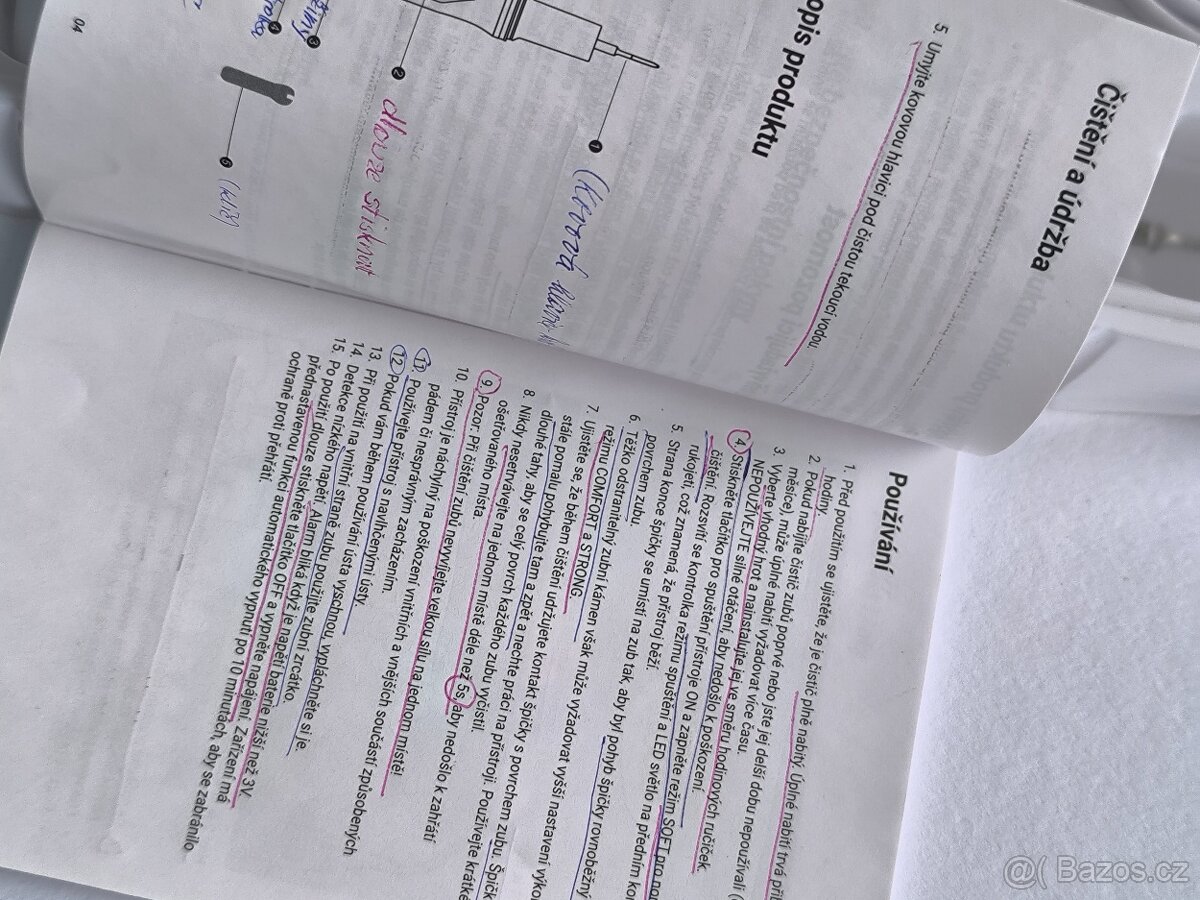 Čištění a údržba
5. Umyjte kovovou hlavici pod čistou tekoucí vodou.
opis produktu
1
(Kovová
2
dlouze stisknout
3
4
5
(klíč)
04
Používání
1. Před použitím se ujistěte, že je čistič plně nabitý. Úplné nabití trvá
hodiny.
2. Pokud nabijíte čistič zubů poprvé nebo jste jej delší dobu nepoužívali (
měsíce), může úplné nabití vyžadovat více času.
3. Vyberte vhodný hrot a nainstalujte jej ve směru hodinových ručiček.
NEPOUŽÍVEJTE silné otáčení, aby nedošlo k poškození.
4. Stiskněte tlačítko pro spuštění přístroje ON a zapněte režim SOFT pro
čištění. Rozsvítí se kontrolka režimu spuštění a LED světlo na předním
rukojeti, což znamená, že přístroj běží.
5. Strana konce špičky se umístí na zub tak, aby byl pohyb špičky rovnoběžný
povrchem zubu.
6. Těžko odstranitelný zubní kámen však může vyžadovat vyšší nastavení
režimu COMFORT a STRONG
7. Ujistěte se, že během čištění udržujete kontakt špičky s povrchem zubu.
stále pomalu pohybujte tam a zpět a nechte práci na přístroji. Používejte
dlouhé tahy, aby se celý povrch každého zubu vyčistil.
8. Nikdy nesetrvávejte na jednom místě déle než 5s, aby nedošlo k zahřátí
ošetřovaného místa.
9. Pozor: Při čištění zubů nevyvíjejte velkou sílu na jednom místě!
10. Přístroj je náchylný na poškození vnitřních a vnějších součástí způsobených
pádem či nesprávným zacházením.
11. Používejte přístroj s navlhčenými ústy.
12. Pokud vám během používání ústa vyschnou, vypláchněte si je.
13. Při použití na vnitřní straně zubu použijte zubní zrcátko.
14. Detekce nízkého napětí: Alarm bliká když je napětí baterie nižší než 3V.
15. Po použití dlouze stiskněte tlačítko OFF a vypněte napájení. Zařízení má
přednastavenou funkci automatického vypnutí po 10 minutách, aby se zabránilo
ochraně proti přehřátí.
@( Bazos.cz